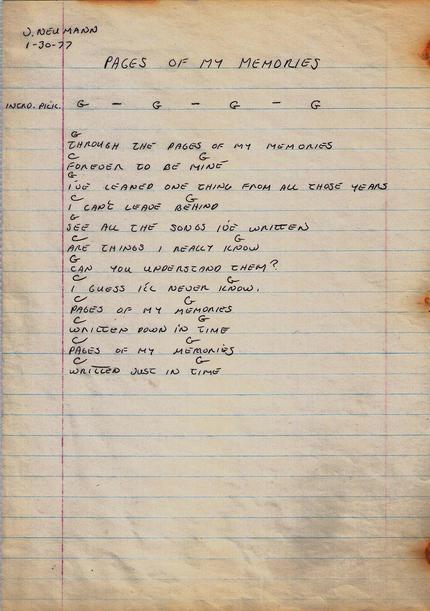 J. NEUMANN
1-30-77
PAGES OF MY MEMORIES
INTRO. PICK. G - G - G - G
G
THROUGH THE PAGES OF MY MEMORIES
C G
FOREVER TO BE MINE
G
I'VE LEANED ONE THING FROM ALL THOSE YEARS
C G
I CAN'T LEAVE BEHIND
G
SEE ALL THE SONGS I'VE WRITTEN
C G
ARE THINGS I REALLY KNOW
G
CAN YOU UNDERSTAND THEM?
C G
I GUESS I'LL NEVER KNOW.
C G
PAGES OF MY MEMORIES
C G
WRITTEN DOWN IN TIME
C G
PAGES OF MY MEMORIES
C G
WRITTEN JUST IN TIME